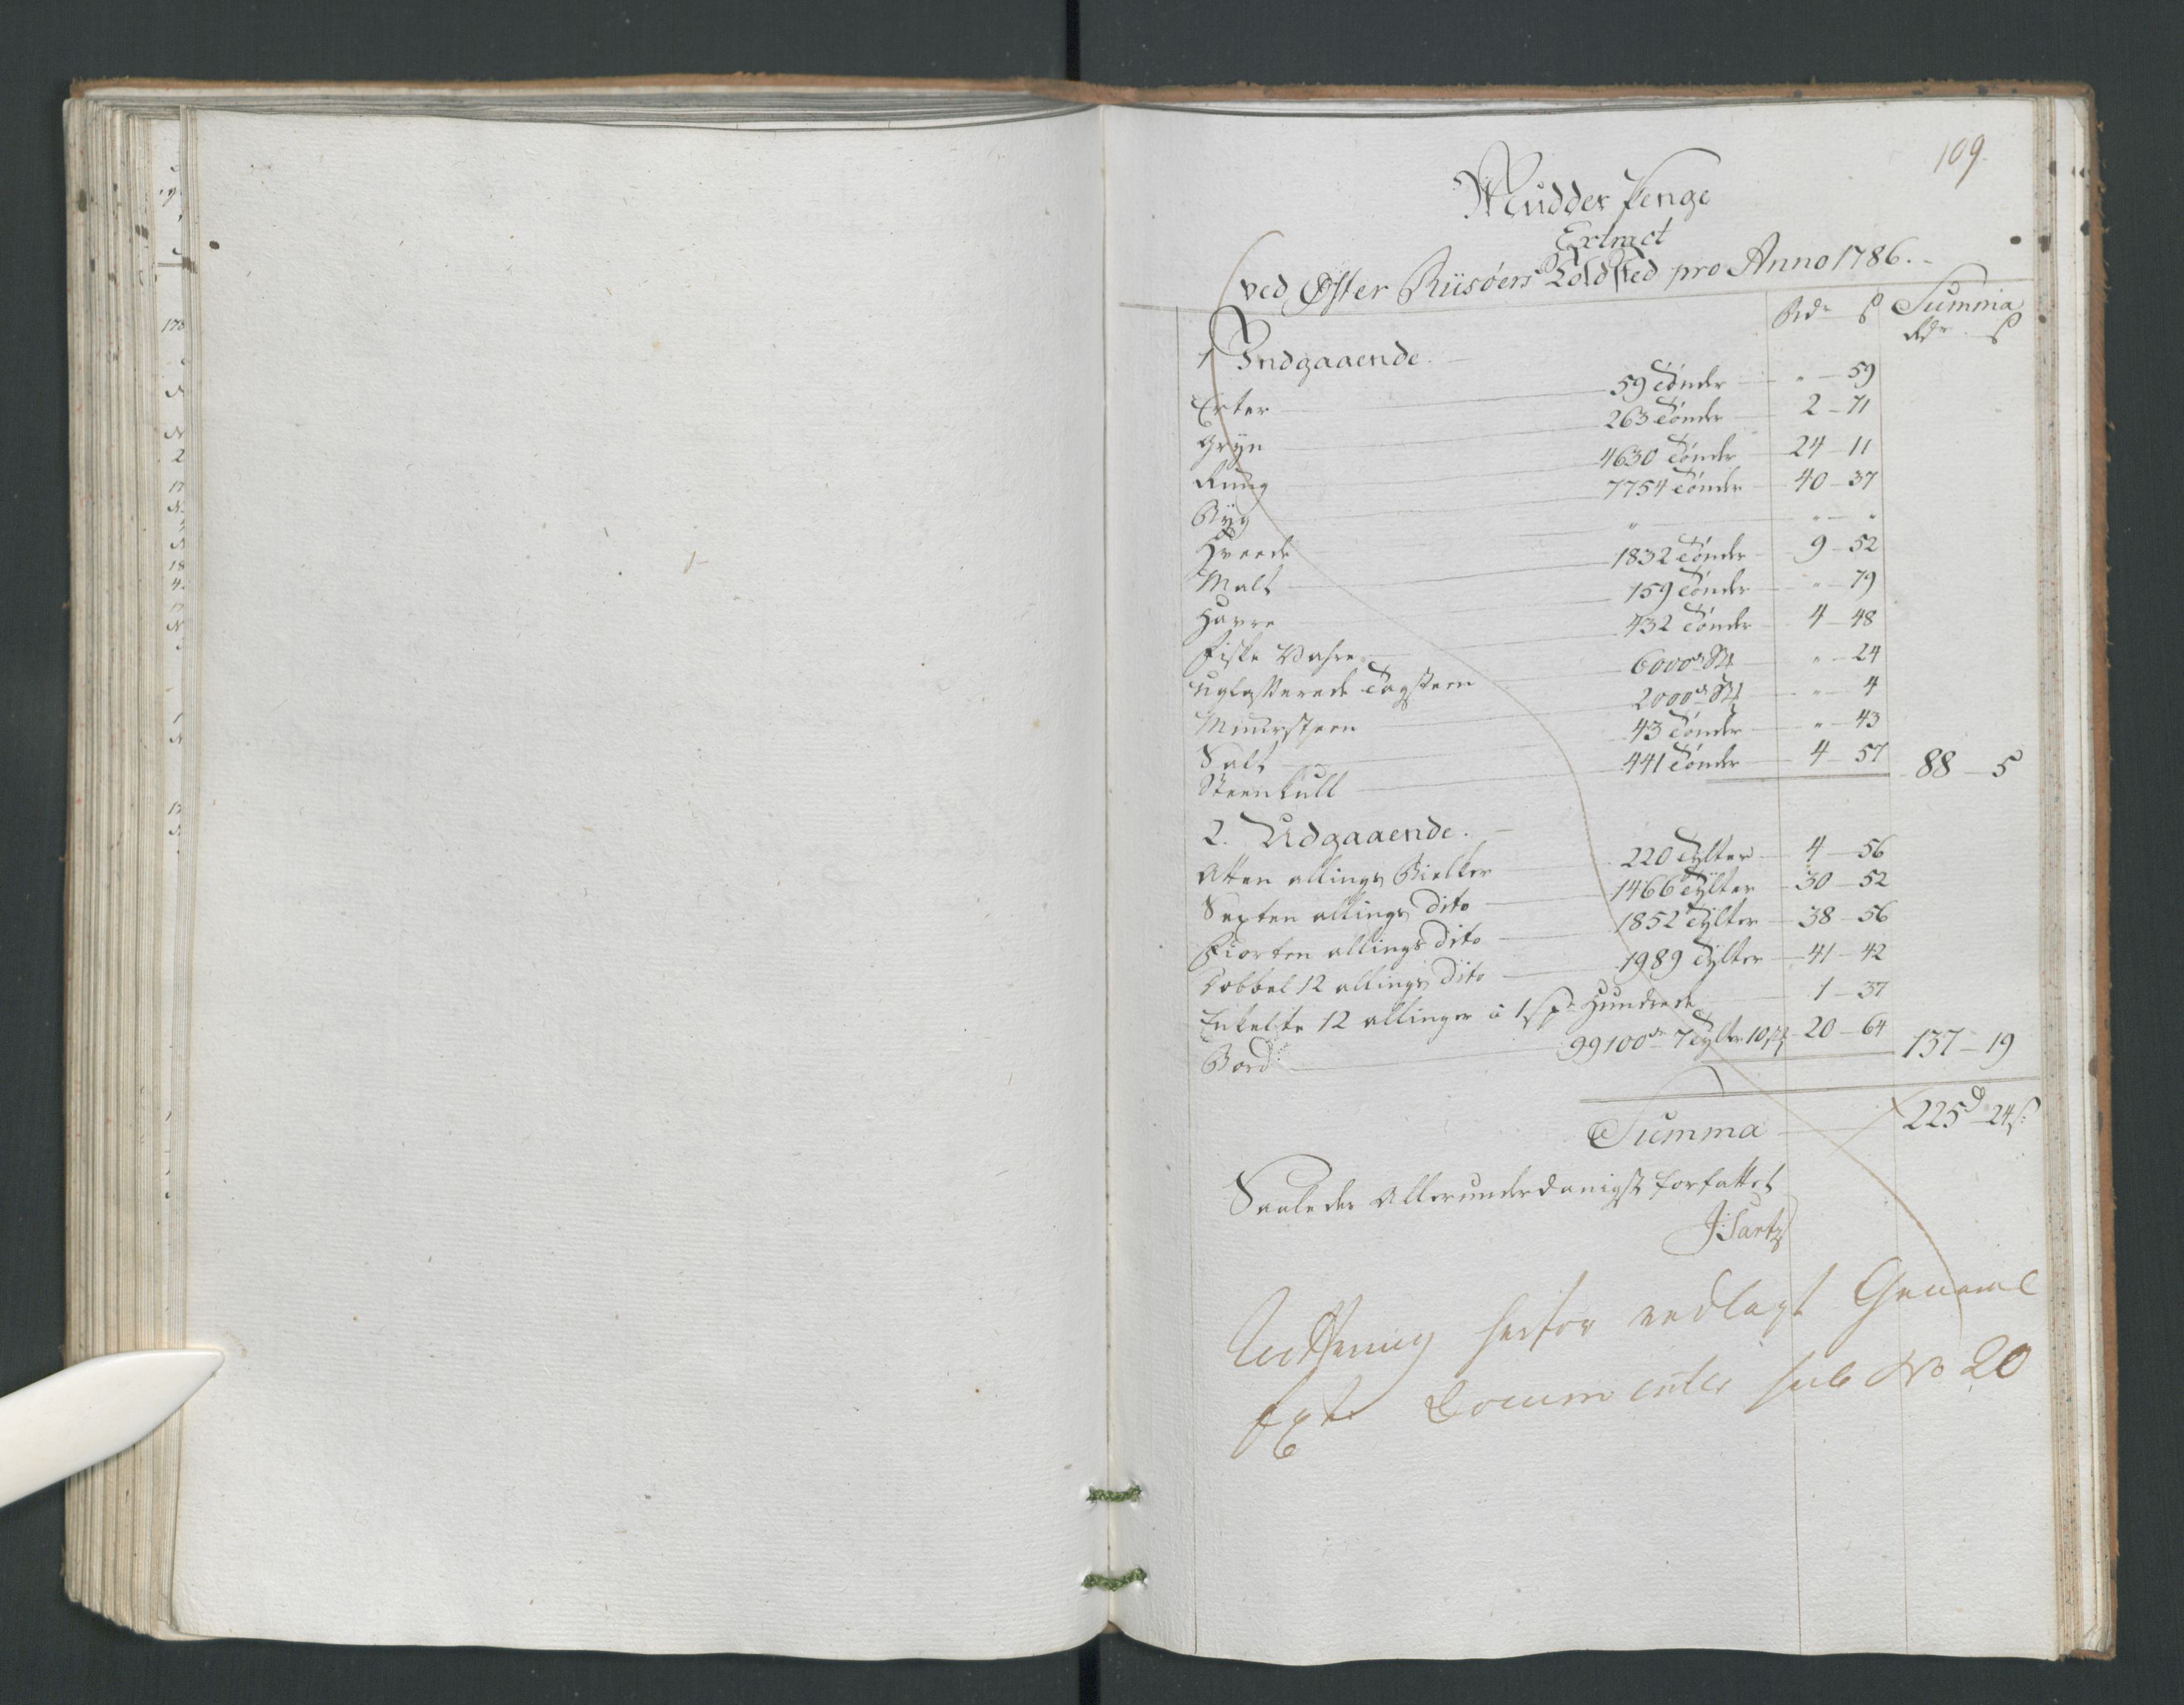 109.
Mudder Penge
Extract
ved Øster Riisøers Toldsted pro Anno 1786.
Rdr ß Summa
Rdr ß
1 Indgaaende.
Erter 59 Tønder " 59
Gryn 263 Tønder 2 - 71
Rug 4630 Tønder 24 11
Byg 7754 Tønder 40 - 37
Hveede " " "
Malt 1832 Tønder 9 - 52
Havre 159 Tønder " 79
Fiske Vahre 432 Tønder 4 - 48
Uglasserede Tagsteen 6000de Stk " 24
Muursteen 2000de Stk " 4
Salt 43 Tønder " 43
Steenkull 441 Tønder 4 57 88 - 5
2. Udgaaende.
Atten allings Bielker 220 Tylter 4 - 56
Sexten allings dito 1466 Tylter 30 - 52
Fiorten allings dito 1852 Tylter 38 - 56
Dobbel 12 allings dito 1989 Tylter 41 - 42
Enkelte 12 allinger á 1 ß pr Hundrede 1 - 37
Bord 99100de 7 Tylter 10 Stk 20 - 64 137 - 19
Summa 225 d 24 ß.
Saaledes Allerunderdanigst forfattet
J: Sartz
herfor vedlagt General
Ext: Documenter sub No 20